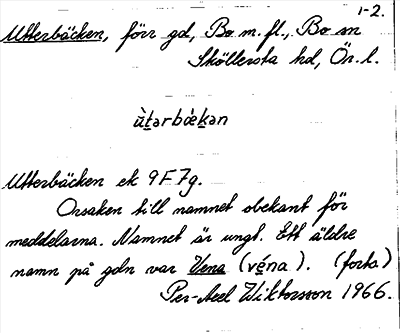 1-2.
Utterbäcken, förr gd, Bo m.fl., Bo sn
Sköllersta hd, Ör. l.
ùtərbæ̀kən
Utterbäcken ek 9F7g.
Orsaken till namnet obekant för
meddelarna. Namnet är ungt. Ett äldre
namn på gdn var Vena (véna). (forts.)
Per-Axel Wiktorsson 1966.